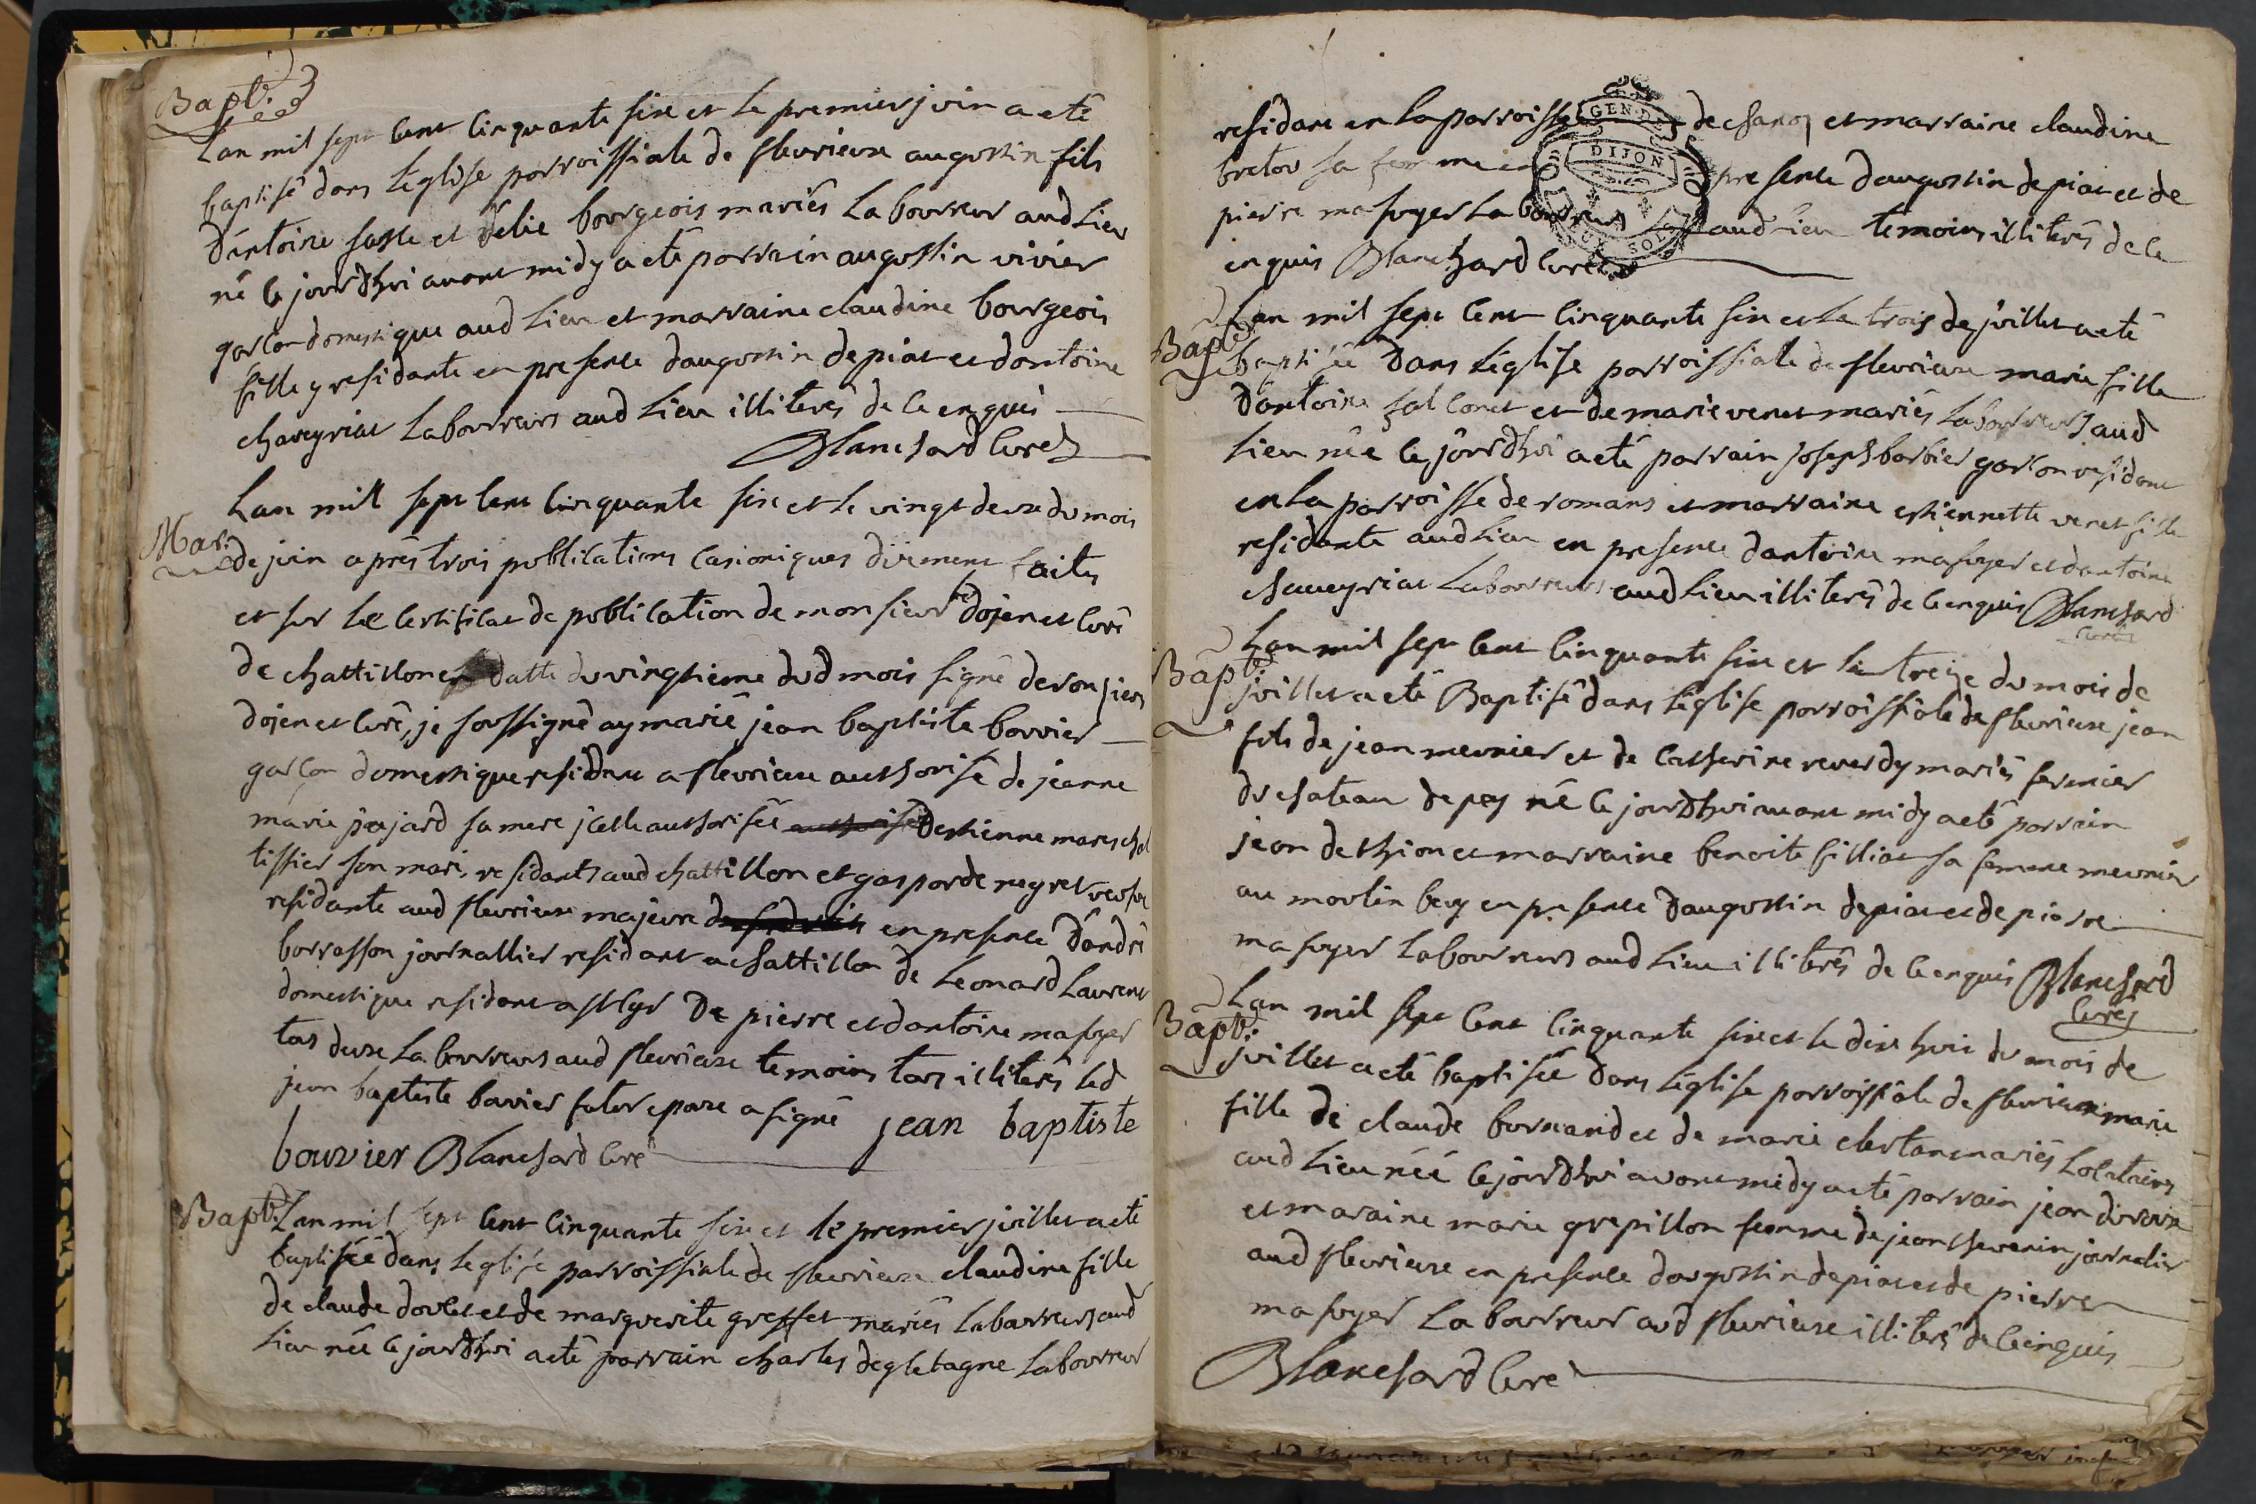 Bapt.
Lan mil sept cent cinquante six et le premier juin a eté
baptisé dans leglise parroissiale de fleurieux augustin fils
dantoine et delie bourgeois mariés laboureur aud lieu
né ce jourdhui avant midy a eté parrain augustin vivier
garcon domestique aud lieu et marraine claudine bourgeois
fille y residante en presence daugustin depiat et dantoine
chaveyriat laboureurs aud lieu illiterés de ce enquis
Blanchard curé
Mar.
Lan mill sept cent cinquante six et le vingt deux du mois
de juin aprês trois publications canoniques duement faites
et sur le certificat de publication de monsieur dojenet curé
de chattillon en datte du vingtieme dud mois signé de
dojenet curé, je soussigné ay marié jean baptiste bouvier
garcon domestique residant a fleurieux authorisé de jeanne
marie pajard sa mere icelle authorisée destienne mareschal
tissier son mari, residants aud chattillon et gasparde negret
residante aud fleurieux majeure en presence dandré
borrasson journallier residant a chattillon de Leonard Laurent
domestique residant a st cyr De pierre et dantoine mafoyer
tous deux laboureurs aud fleurieux temoins tous illiterés led
jean baptiste bouvier futur epoux a signé jean baptiste
bouvier Blanchard curé
Bapt.
Lan mil sept cent cinquante six et le premier juillet a eté
baptisée dans leglise parroissiale de fleurieux claudine fille
de claude doulet et de marguerite greffet mariés laboureurs aud
lieu née ce jourdhui a eté parrain charles degletagne laboureur
residant en la parroisse de chanoz et marraine claudine
breton sa femme en presence daugustin depiat et de
pierre mafoyer laboureurs aud lieu temoins illiterés de ce
enquis Blanchard curé
GEN. DE DIJON
DEUX SOLS
Bapt.
Lan mil sept cent cinquante six et le trois de juillet a eté
baptisée dans leglise parroissiale de fleurieux marie fille
dantoine falconet et de marie venet mariés laboureurs aud
lieu née ce jourdhui a eté parrain joseph barbier garcon residant
en la parroisse de romans et marraine estiennette venet fille
residante aud lieu en presence dantoine mafoyer et dantoine
chaveyriat laboureurs aud lieu illiterés de ce enquis Blanchard
curé
Bapt.
Lan mil sept cent cinquante six et le treize du mois de
juillet a eté Baptisé dans leglise parroissiale de fleurieux jean
fils de jean meunier et de catherine reverdy mariés fermier
du chateau de né ce jourdhui avant midy a eté parrain
jean dethion et marraine benoite filliat sa femme meunier
au moulin en presence daugustin depiat et de pierre
mafoyer laboureurs aud lieu illiterés de ce enquis Blanchard
curé
Bapt.
Lan mil sept cent cinquante six et le dix huit du mois de
juillet a eté baptisée dans leglise parroissiale de fleurieux marie
fille de claude et de marie mariés
aud lieu née ce jourdhui avant midy a eté parrain jean
et maraine marie grepillon femme de jean thevenin journalier
aud fleurieux en presence daugustin depiat et de pierre
mafoyer laboureur aud fleurieux illiterés de ce enquis
Blanchard curé